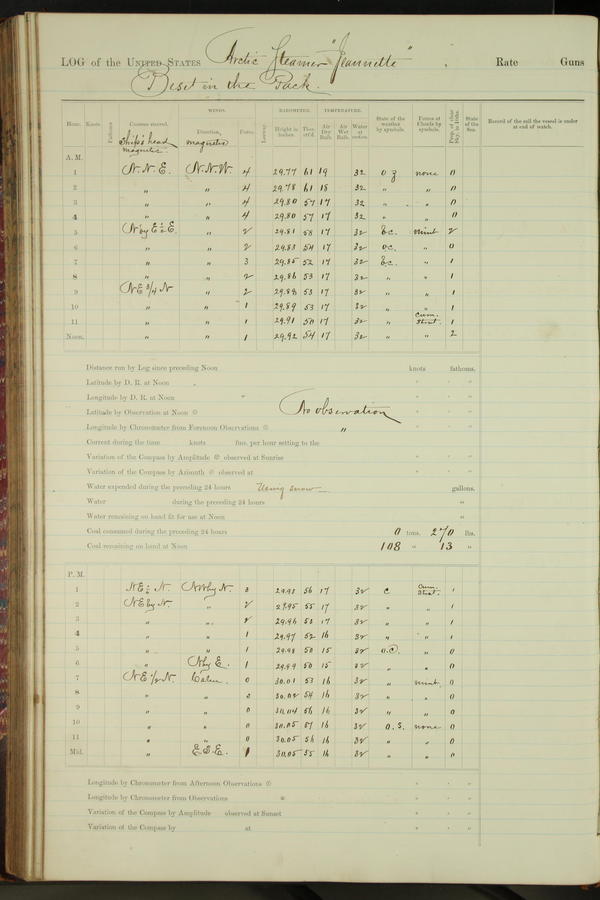 LOG of the UNITED STATES Arctic Steamer "Jeannette" Rate Guns
Beset in the Pack.
WINDS. BAROMETER. TEMPERATURE.
Hour. Knots. Fathoms. Courses steered. Direction. Force. Leeway. Height in inches. Ther. att'd. Air Dry Bulb. Air Wet Bulb. Water at surface. State of the weather by symbols. Forms of Clouds by symbols. Prop. of clear Sky, in 10ths. State of the Sea. Record of the sail the vessel is under at end of watch.
Ship's head magnetic. magnetic
A. M.
1 N. N. E. N. N. W. 4 29.77 61 19 32 o z none 0
2 " " 4 29.78 61 18 32 " " 0
3 " " 4 29.80 57 17 32 " " 0
4 " " 4 29.80 57 17 32 " " 0
5 N by E ½ E " 2 29.81 58 17 32 b.c. mint 2
6 " " 2 29.83 54 17 32 o.c. " 0
7 " " 3 29.85 52 17 32 b.c. " 1
8 " " 2 29.86 53 17 32 " " 1
9 NE ¾ N " 2 29.88 53 17 32 " " 1
10 " " 1 29.89 53 17 32 " " 1
11 " " 1 29.91 50 17 32 " Cum. Strat. 1
Noon. " " 1 29.92 54 17 32 " " 2
Distance run by Log since preceding Noon knots fathoms.
Latitude by D. R. at Noon
Longitude by D. R. at Noon
Latitude by Observation at Noon No observation
Longitude by Chronometer from Forenoon Observations "
Current during the time knots fms. per hour setting to the
Variation of the Compass by Amplitude observed at Sunrise
Variation of the Compass by Azimuth observed at
Water expended during the preceding 24 hours Using snow gallons.
Water during the preceding 24 hours "
Water remaining on hand fit for use at Noon "
Coal consumed during the preceding 24 hours 0 tons. 270 lbs.
Coal remaining on hand at Noon 108 " 13 "
P. M.
1 NE ½ N. NW by N. 3 29.93 56 17 32 c Cum. Strat. 1
2 NE by N. " 2 29.95 55 17 32 " " 1
3 " " 2 29.96 53 17 32 " " 1
4 " " 1 29.97 52 16 32 " " 1
5 " " 1 29.98 50 15 32 o.c. " 0
6 " N by E. 1 29.99 50 15 32 " " 0
7 NE ½ N. Calm 0 30.01 53 16 32 " mint. 0
8 " " 0 30.02 54 16 32 " " 0
9 " " 0 30.04 56 16 32 " " 0
10 " " 0 30.05 57 16 32 o. s. none 0
11 " " 0 30.05 56 16 32 " " 0
Mid. " E.S.E. 1 30.05 55 16 32 " " 0
Longitude by Chronometer from Afternoon Observations
Longitude by Chronometer from Observations
Variation of the Compass by Amplitude observed at Sunset
Variation of the Compass by at